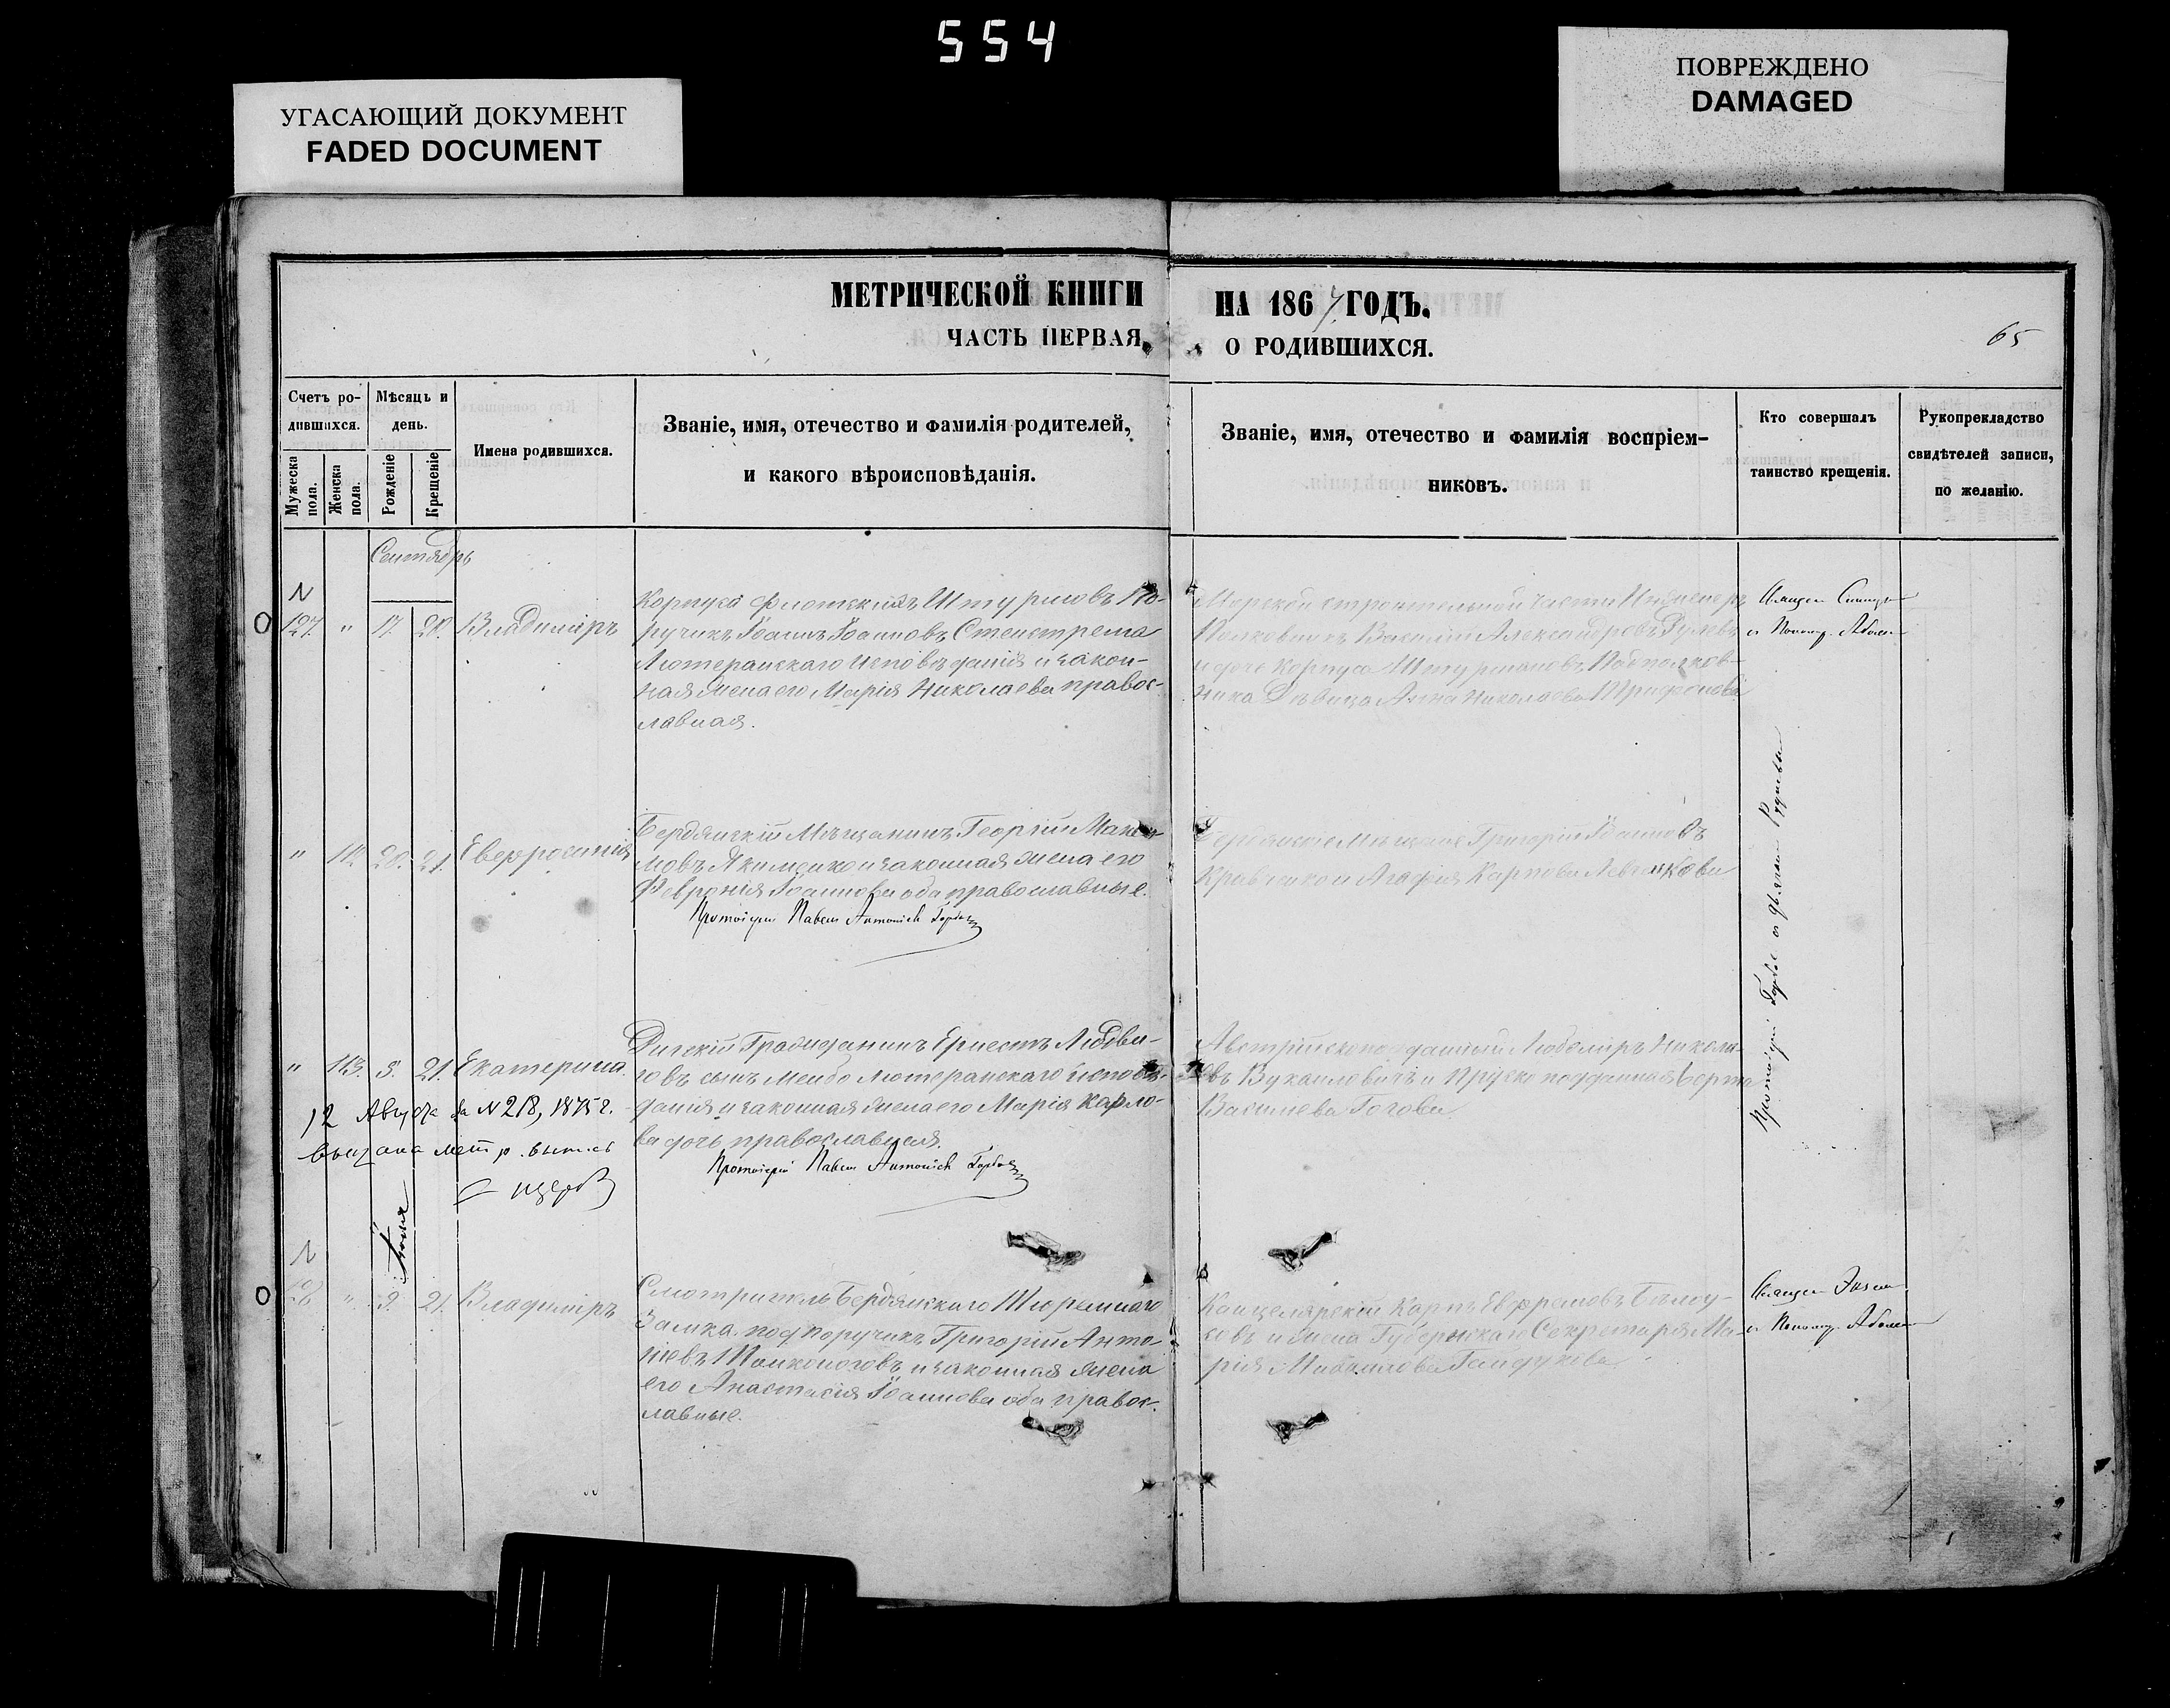 554
УГАСАЮЩИЙ ДОКУМЕНТ
FADED DOCUMENT
ПОВРЕЖДЕНО
DAMAGED
МЕТРИЧЕСКОЙ КНИГИ
НА 1867 ГОДЪ.
ЧАСТЬ ПЕРВАЯ,
О РОДИВШИХСЯ.
65
Счетъ ро-
дившихся.
Мужеска пола.
Женска пола.
Мѣсяцъ и
день.
Рожденіе
Крещеніе
Имена родившихся.
Званіе, имя, отечество и фамилія родителей,
и какого вѣроисповѣданія.
Званіе, имя, отечество и фамилія воспріем-
никовъ.
Кто совершалъ
таинство крещенія.
Рукоприкладство
свидѣтелей записи,
по желанію.
Сентябрь
N
127. " 17. 20. Владиміръ
Корпуса флотскихъ Штурмовъ По-
ручикъ Іоаннъ Іоанновъ Стенстрема
Лютеранскаго исповѣданія и закон-
ная жена его Марія Николаева правос-
лавная.
Морской строительной части Инженеръ
Полковникъ Василій Александровъ Рулевъ
и дочь корпуса Штурмановъ Подполков-
ника Дѣвица Анна Николаева Трифонова
" 112. 20. 21. Евфросинія
Бердянскій Мѣщанинъ Георгій Макси-
мовъ Якименко и законная жена его
Феврония Іоаннова оба православные.
Протоіерей Павелъ Антоніевъ
Бердянские мѣщане Григорій Іоанновъ
Кравченко и Агафия Карпова Левченкова
" 113. 3. 21. Екатерина.
Рижскій Гражданинъ Ернестъ Лудови-
говъ сынъ Мейбо Лютеранскаго исповѣ-
данія и законная жена его Марія Карло-
ва дочь православная.
Протоіерей Павелъ Антоніевъ
Австрійско подданный Любоміръ Никола-
евъ Вукаиловичъ и Прусско подданная Берта
Васильева Готова
12 Августа за N 218, 1875 г.
выдана метр. выпись
Іюня
N
" 9. 21. Владиміръ
Смотритель Бердянскаго Тюремнаго
Замка. подпоручикъ Григорій Анто-
ніевъ и законная жена
его Анастасія Іоаннова оба правос-
лавные.
Канцелярскій Карпъ Евфремовъ Бѣлоу-
совъ и жена Губернскаго Секретаря Ма-
рія Михайлова Гайдукова